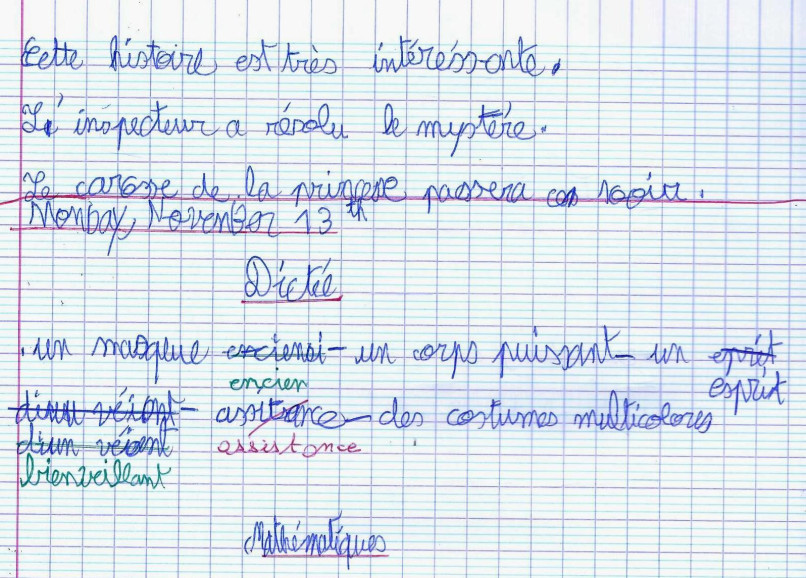 Cette histoire est très intéréssante.
L'inspecteur a résolu le mystére.
Le carosse de la princese passera ce soir.
Monday, November 13th
Dictée
. un masque encienoi - un corps puissant - un esprit
encien esprit
- assitance - des costumes multicolores
assistance
bienveillant
Mathématiques